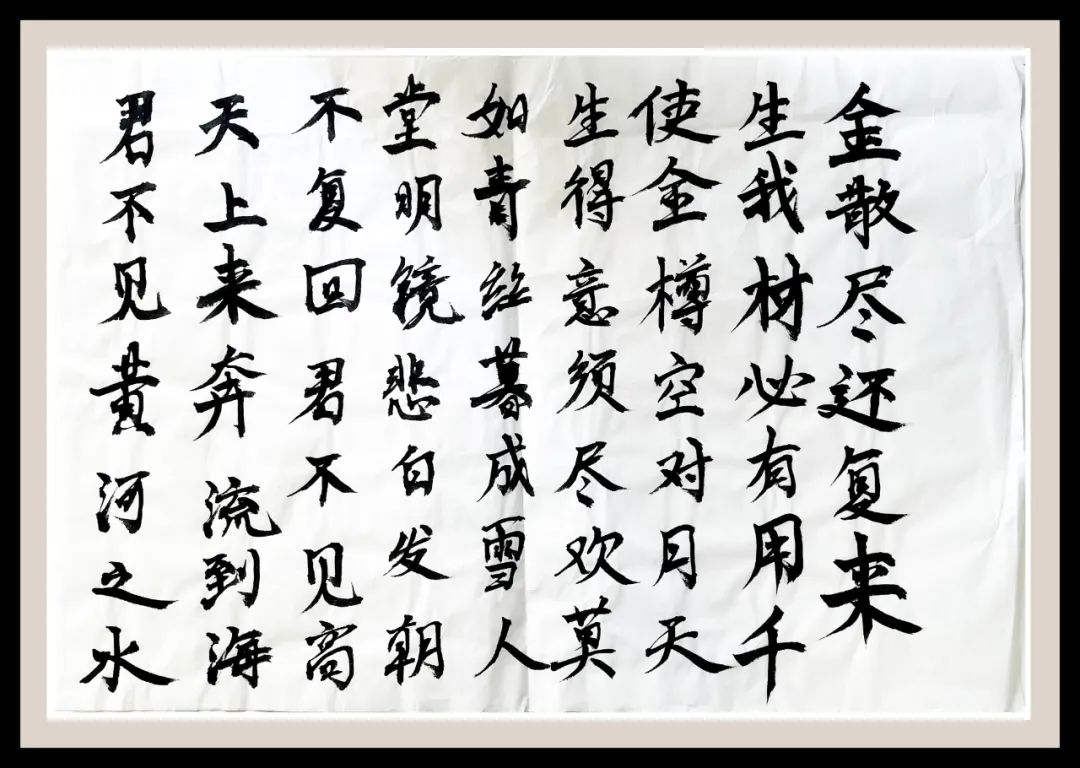 君不见黄河之水
天上来奔流到海
不复回君不见高
堂明镜悲白发朝
如青丝暮成雪人
生得意须尽欢莫
使金樽空对月天
生我材必有用千
金散尽还复来